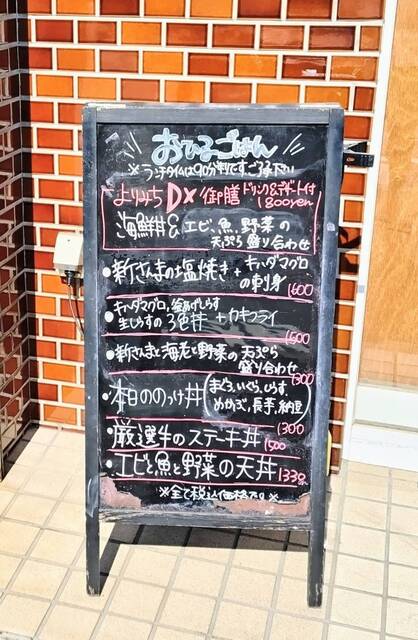 おひるごはん
※ランチタイムは90分制ですご了承下さい
よりみちDX御膳 ドリンク&デザート付 1800yen
海鮮丼& エビ、魚、野菜の
天ぷら盛り合わせ
・新さんまの塩焼き + キハダマグロ
の刺身 1600
・キハダマグロ、釜あげしらす
生しらすの3色丼 + カキフライ
1500
・新さんまと海老と野菜の天ぷら
盛り合わせ
1300
・本日ののっけ丼 (まぐろ、いくら、しらす、
めかぶ、長芋、納豆)
1300
・厳選牛のステーキ丼 1500
・エビと魚と野菜の天丼 1330
※全て税込価格です※